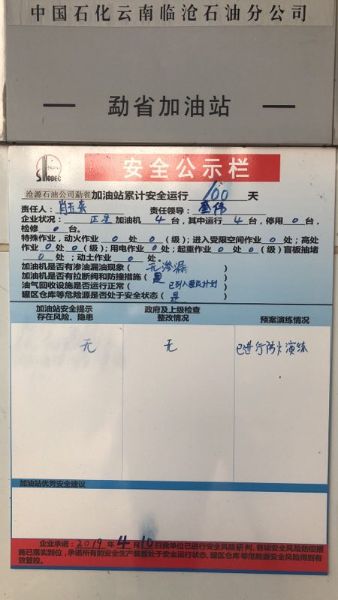 中国石化云南临沧石油分公司
勐省加油站
SINOPEC
安全公示栏
沧源石油公司勐省加油站累计安全运行 160 天
责任人: 责任领导:
企业状况: 正常 加油机 4 台,其中运行 4 台,停用 0 台,
检修 0 台。
特殊作业,动火作业 0 处( 0 级);进入受限空间作业 0 处;高处
作业 0 处( 0 级);用电作业 0 处;起重作业 0 处( 0 级);盲板抽堵
0 处;动土作业 0 处。
加油机是否有渗油漏油现象( 无渗漏 )
加油机是否有拉断阀和防撞措施( 是 )
油气回收设施是否运行正常( 已列入整改计划 )
罐区仓库等危险源是否处于安全状态( 是 )
加油站安全提示
存在风险、隐患
政府及上级检查
整改情况
预案演练情况
无
无
已进行防火演练
加油站优秀安全建议
企业承诺:2019年4月10日我单位已进行安全风险研判,各项安全风险防控措
施已落实到位,承诺所有的安全生产装置处于安全运行状态,罐区仓库等危险安全风险得到有
效管控。